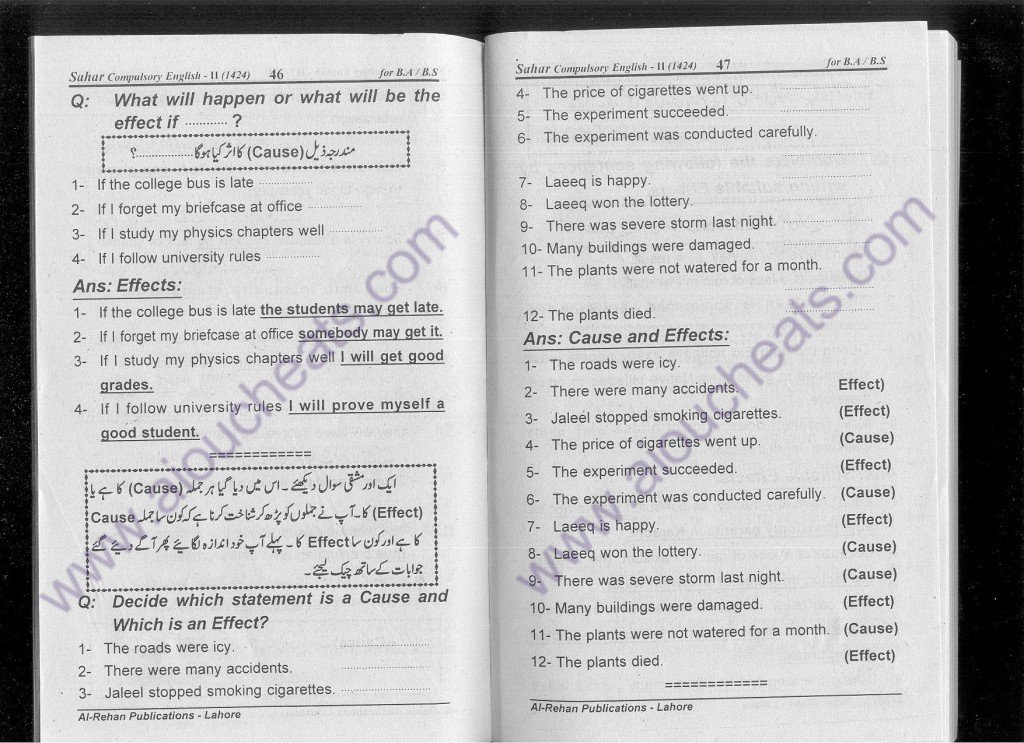 Sahar Compulsory English - II (1424) 46 for B.A / B.S
Q: What will happen or what will be the
effect if ............ ?
مندرجہ ذیل (Cause) کا اثر کیا ہوگا ..................؟
1- If the college bus is late ...............
2- If I forget my briefcase at office ...............
3- If I study my physics chapters well ...............
4- If I follow university rules ...............
Ans: Effects:
1- If the college bus is late the students may get late.
2- If I forget my briefcase at office somebody may get it.
3- If I study my physics chapters well I will get good
grades.
4- If I follow university rules I will prove myself a
good student.
============
ایک اور مشقی سوال دیکھئے۔ اس میں دیا گیا ہر جملہ (Cause) کا ہے یا
(Effect) کا۔ آپ نے جملوں کو پڑھ کر شناخت کرنا ہے کہ کون سا جملہ Cause
کا ہے اور کون سا Effect کا۔ پہلے آپ خود اندازہ لگائیے پھر آگے دیئے گئے
جوابات کے ساتھ چیک کیجئے۔
Q: Decide which statement is a Cause and
Which is an Effect?
1- The roads were icy. ....................
2- There were many accidents. ....................
3- Jaleel stopped smoking cigarettes. ....................
Al-Rehan Publications - Lahore
Sahar Compulsory English - II (1424) 47 for B.A / B.S
4- The price of cigarettes went up. ....................
5- The experiment succeeded. ....................
6- The experiment was conducted carefully.
....................
7- Laeeq is happy. ....................
8- Laeeq won the lottery. ....................
9- There was severe storm last night. ....................
10- Many buildings were damaged. ....................
11- The plants were not watered for a month.
....................
12- The plants died. ....................
Ans: Cause and Effects:
1- The roads were icy.
2- There were many accidents. Effect)
3- Jaleel stopped smoking cigarettes. (Effect)
4- The price of cigarettes went up. (Cause)
5- The experiment succeeded. (Effect)
6- The experiment was conducted carefully. (Cause)
7- Laeeq is happy. (Effect)
8- Laeeq won the lottery. (Cause)
9- There was severe storm last night. (Cause)
10- Many buildings were damaged. (Effect)
11- The plants were not watered for a month. (Cause)
12- The plants died. (Effect)
============
Al-Rehan Publications - Lahore
www.aioucheats.com
www.aioucheats.com